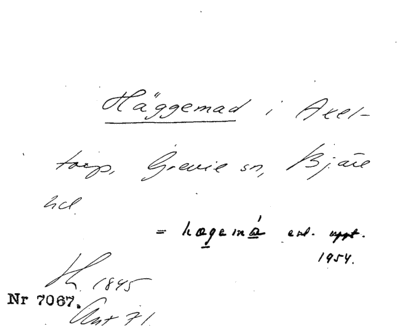 Häggemad i Axel-
torp, Grevie sn, Bjäre
hd.
= hagemá enl. uppt.
1954.
H. 1845
Nr 7067.
Ant 71.